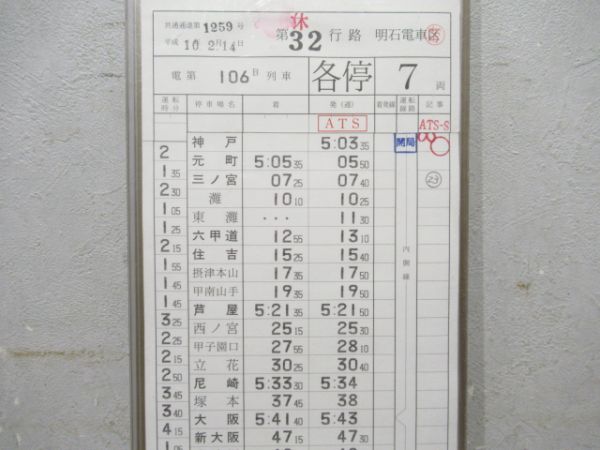 共通通達第1259号
平成10.2.14日
休
第32行路 明石電車区
電第 106B列車 各停 7両
運転時分 停車場名 着 発(通) 着発線 運転線路 記事
ATS ATS-S
神戸 5:03 35 開局
2 元町 5:05 35 05 50
1 35 三ノ宮 07 25 07 40 23
2 30 灘 10 10 10 25
1 05 東灘 ・・・ 11 30
1 25 六甲道 12 55 13 10
2 15 住吉 15 25 15 40 内側線
1 55 摂津本山 17 35 17 50
1 45 甲南山手 19 35 19 50
1 45 芦屋 5:21 35 5:21 50
3 25 西ノ宮 25 15 25 30
2 25 甲子園口 27 55 28 10
2 15 立花 30 25 30 40
2 50 尼崎 5:33 30 5:34
3 45 塚本 37 45 38
3 40 大阪 5:41 40 5:43
4 15 新大阪 47 15 47 30